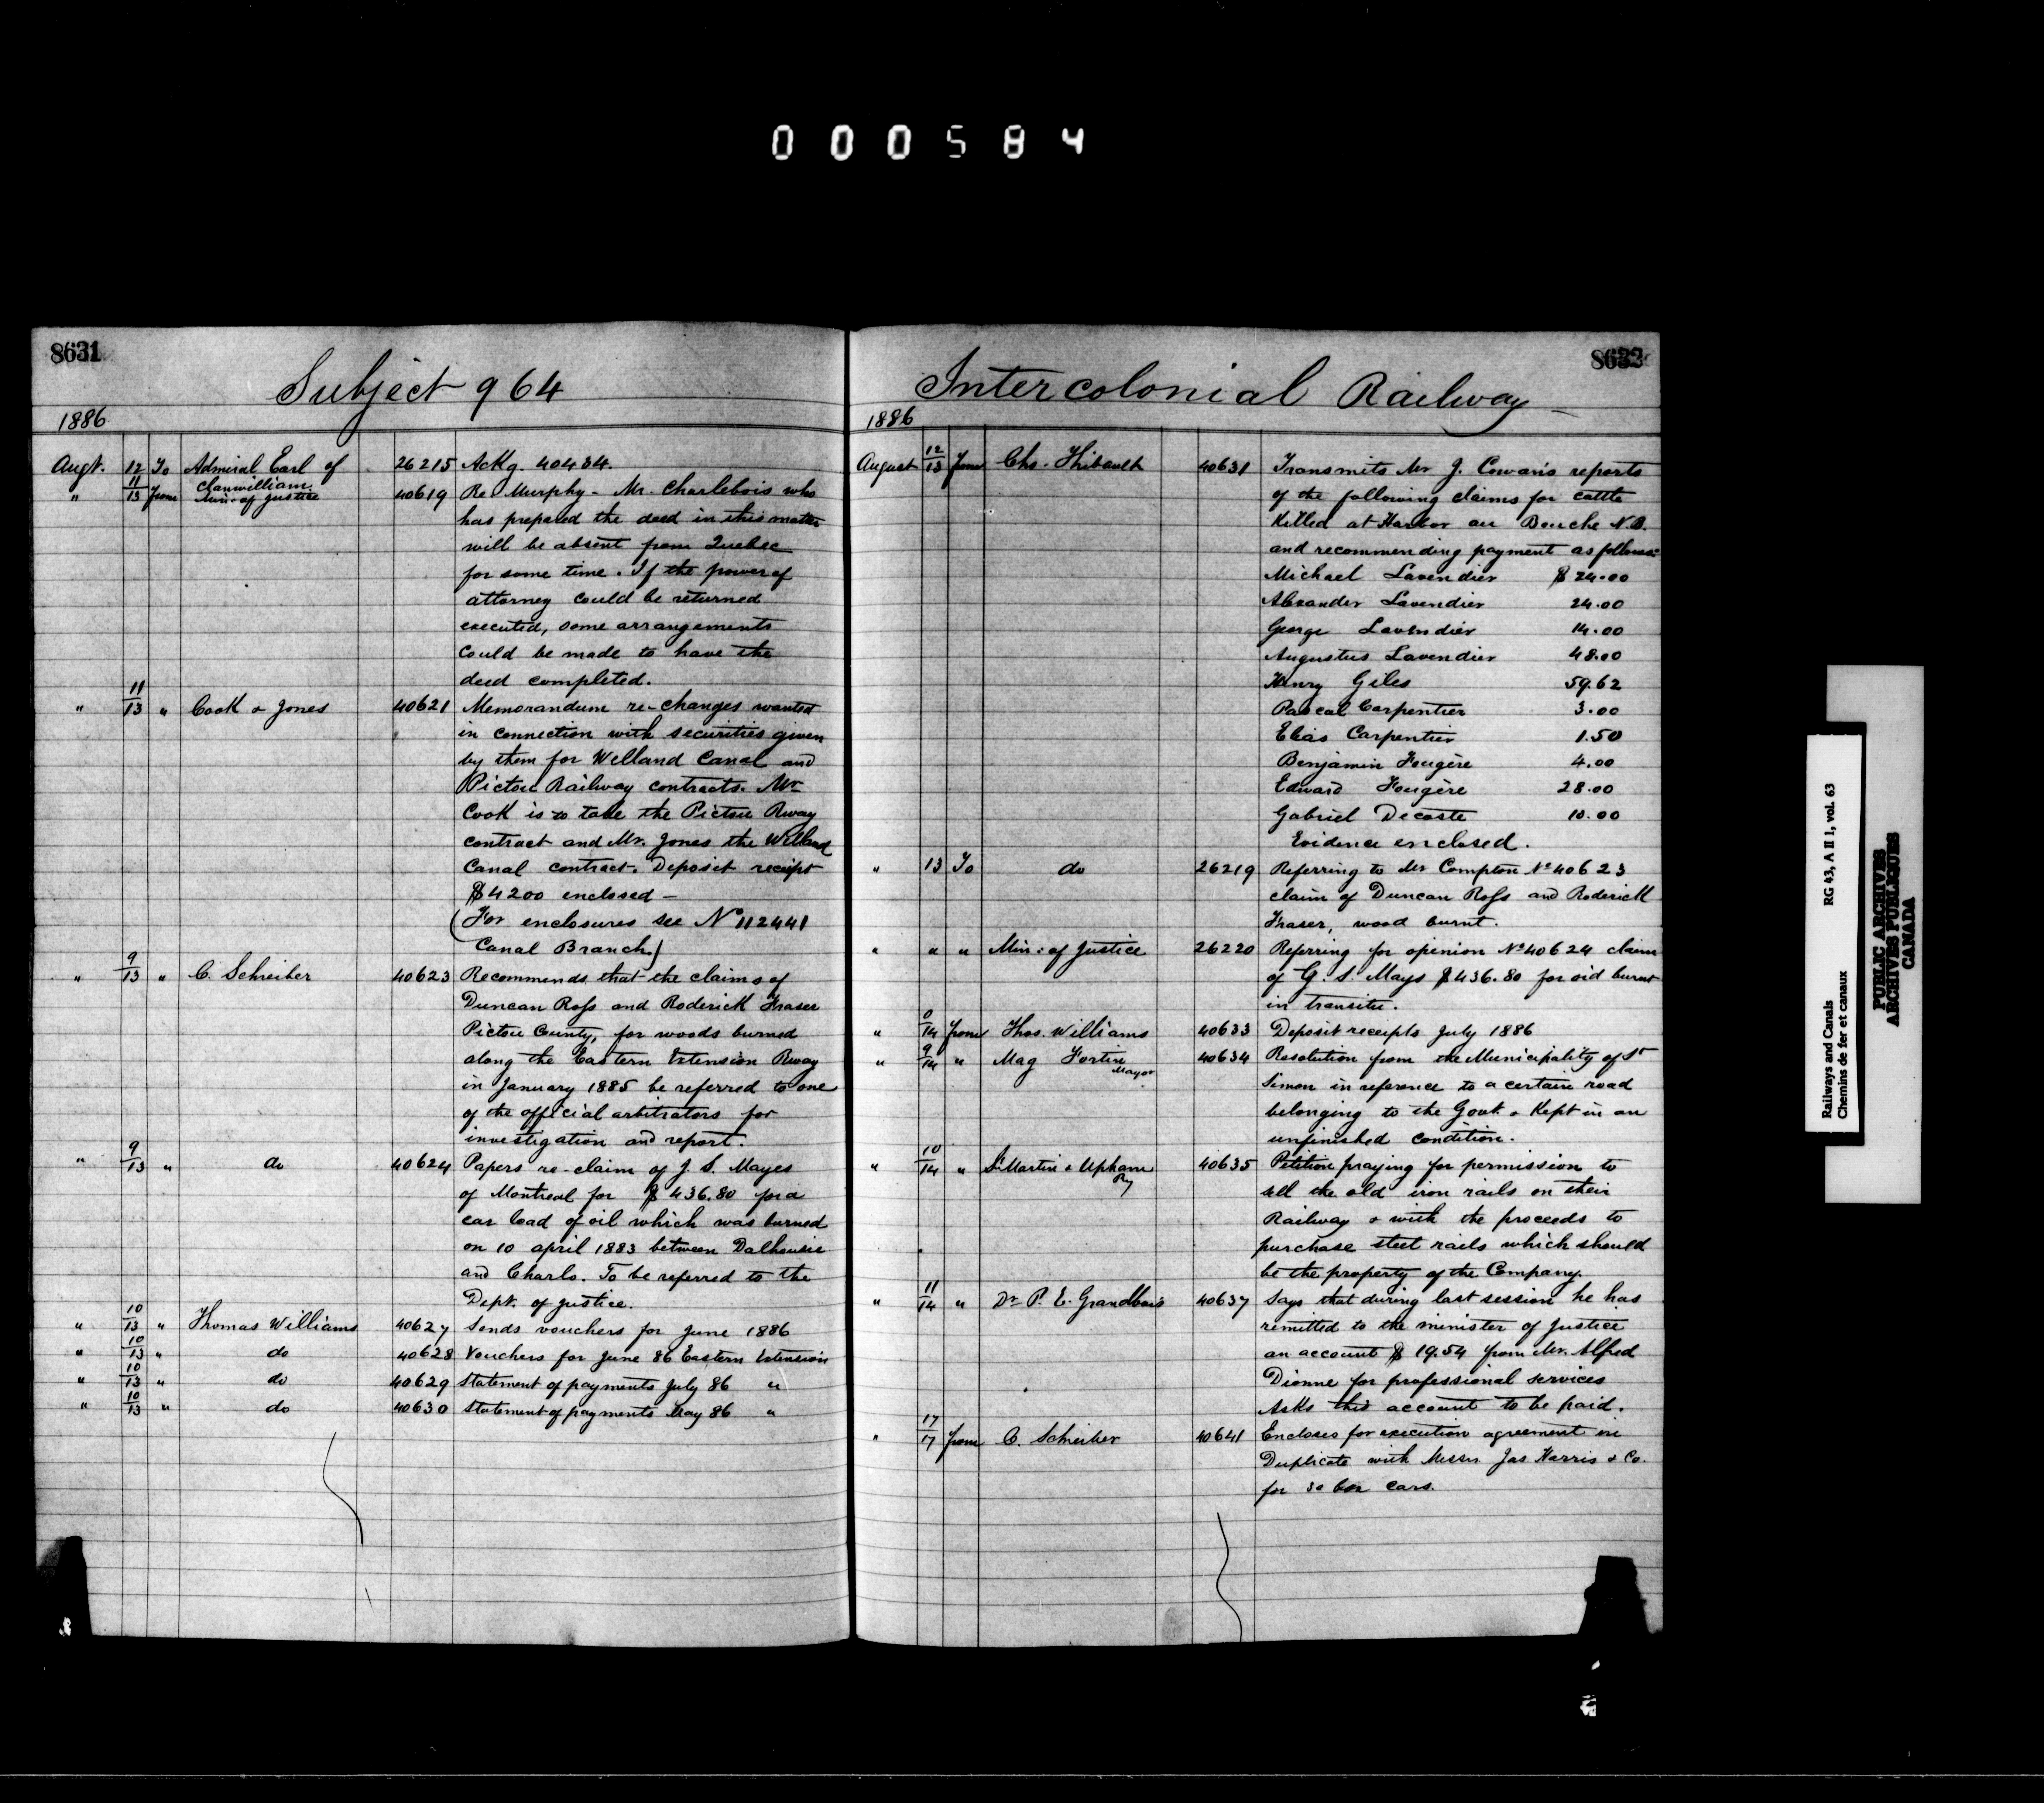 000584
8631
Subject 964
1886
Augt. 12 To Admiral Earl of Clanwilliam 26215 Ackg. 40434.
" 11/13 from Min. of Justice 40619 Re Murphy - Mr. Charlebois who
has prepared the deed in this matter
will be absent from Quebec
for some time. If the power of
attorney could be returned
executed, some arrangements
could be made to have the
deed completed.
" 11/13 " Cook & Jones 40621 Memorandum re-changes wanted
in connection with securities given
by them for Welland Canal and
Pictou Railway contracts. Mr
Cook is to take the Pictou Rway
contract and Mr. Jones the Welland
Canal contract. Deposit receipt
$4200 enclosed -
(For enclosures see No 112441
Canal Branch.)
" 9/13 " C. Schreiber 40623 Recommends that the claims of
Duncan Ross and Roderick Fraser
Pictou County, for woods burned
along the Eastern Extension Rway
in January 1885 be referred to one
of the official arbitrators for
investigation and report.
" 9/13 " do 40624 Papers re-claim of J. S. Mayes
of Montreal for $436.80 for a
car load of oil which was burned
on 10 april 1883 between Dalhousie
and Charlo. To be referred to the
Dept. of Justice.
" 10/13 " Thomas Williams 40627 Sends vouchers for June 1886
" 10/13 " do 40628 Vouchers for June 86 Eastern Extension
" 10/13 " do 40629 Statement of payments July 86 "
" 10/13 " do 40630 Statement of payments May 86 "
8632
Intercolonial Railway
1886
August 12/13 from Chs. Thibault 40631 Transmits Mr J. Cowan's reports
of the following claims for cattle
Killed at Harbor au Bouche N.B.
and recommending payment as follows:
Michael Lavendier $24.00
Alexander Lavendier 24.00
George Lavendier 14.00
Augustus Lavendier 48.00
Henry Giles 59.62
Pascal Carpentier 3.00
Elias Carpentier 1.50
Benjamin Fougère 4.00
Edward Fougère 28.00
Gabriel Decoste 10.00
Evidence enclosed.
" 13 To do 26219 Referring to Mr Compton No 40623
claim of Duncan Ross and Roderick
Fraser, wood burnt.
" " " Min: of Justice 26220 Referring for opinion No 40624 claim
of G. S. Mays $436.80 for oil burnt
in transitu.
" 14 from Thos. Williams 40633 Deposit receipts July 1886
" 9/14 " Mag Fortin Mayor 40634 Resolution from the Municipality of St
Simon in reference to a certain road
belonging to the Govt. & Kept in an
unfinished condition.
" 10/14 " St Martin & Upham Ry 40635 Petition praying for permission to
sell the old iron rails on their
Railway & with the proceeds to
purchase steel rails which should
be the property of the Company.
" 11/14 " Dr P. E. Grandbois 40637 Says that during last session he has
remitted to the minister of Justice
an account $19.54 from Mr. Alfred
Dionne for professional services
Asks this account to be paid.
" 17/17 from C. Schreiber 40641 Encloses for execution agreement in
Duplicate with Messrs Jas Harris & Co.
for 30 box cars.
Railways and Canals RG 43, A II 1, vol. 63
Chemins de fer et canaux
PUBLIC ARCHIVES
ARCHIVES PUBLIQUES
CANADA